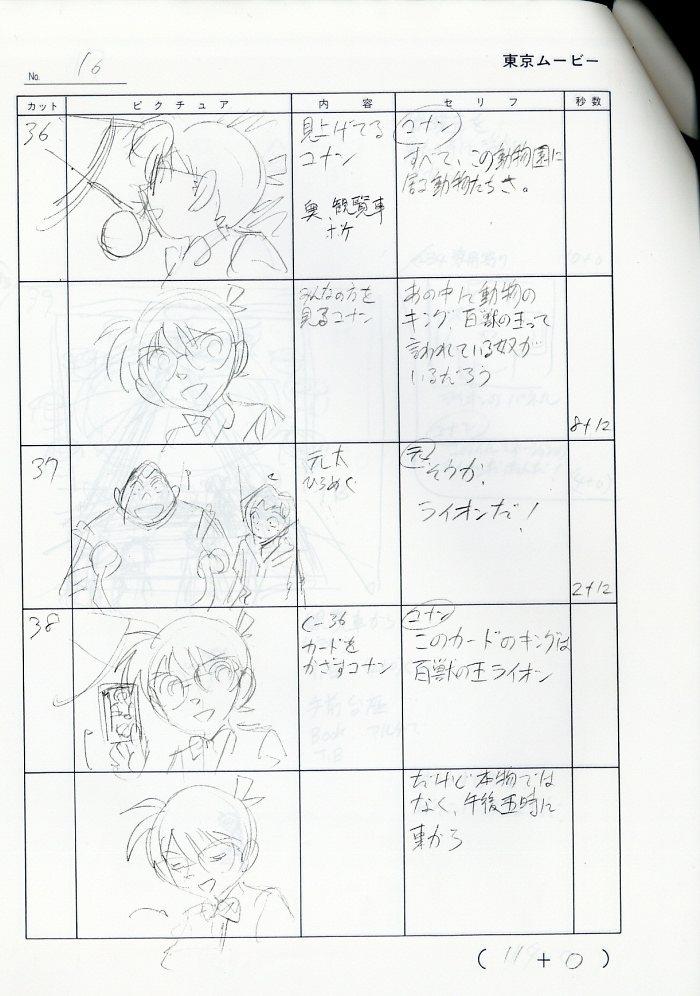 No. 16
東京ムービー
カット ピクチュア 内容 セリフ 秒数
36
見上げてる
コナン
奥、観覧車
ボケ
コナン
すべて、この動物園に
居る動物たちさ。
みんなの方を
見るコナン
あの中に動物の
キング、百獣の王って
言われている奴が
いるだろう
8+12
37
元太
ひらめく
元
そうか、
ライオンだ!
2+12
38
C-36
カードを
かざすコナン
コナン
このカードのキングは
百獣の王ライオン
だけど本物では
なく、午後五時に
( + 0 )